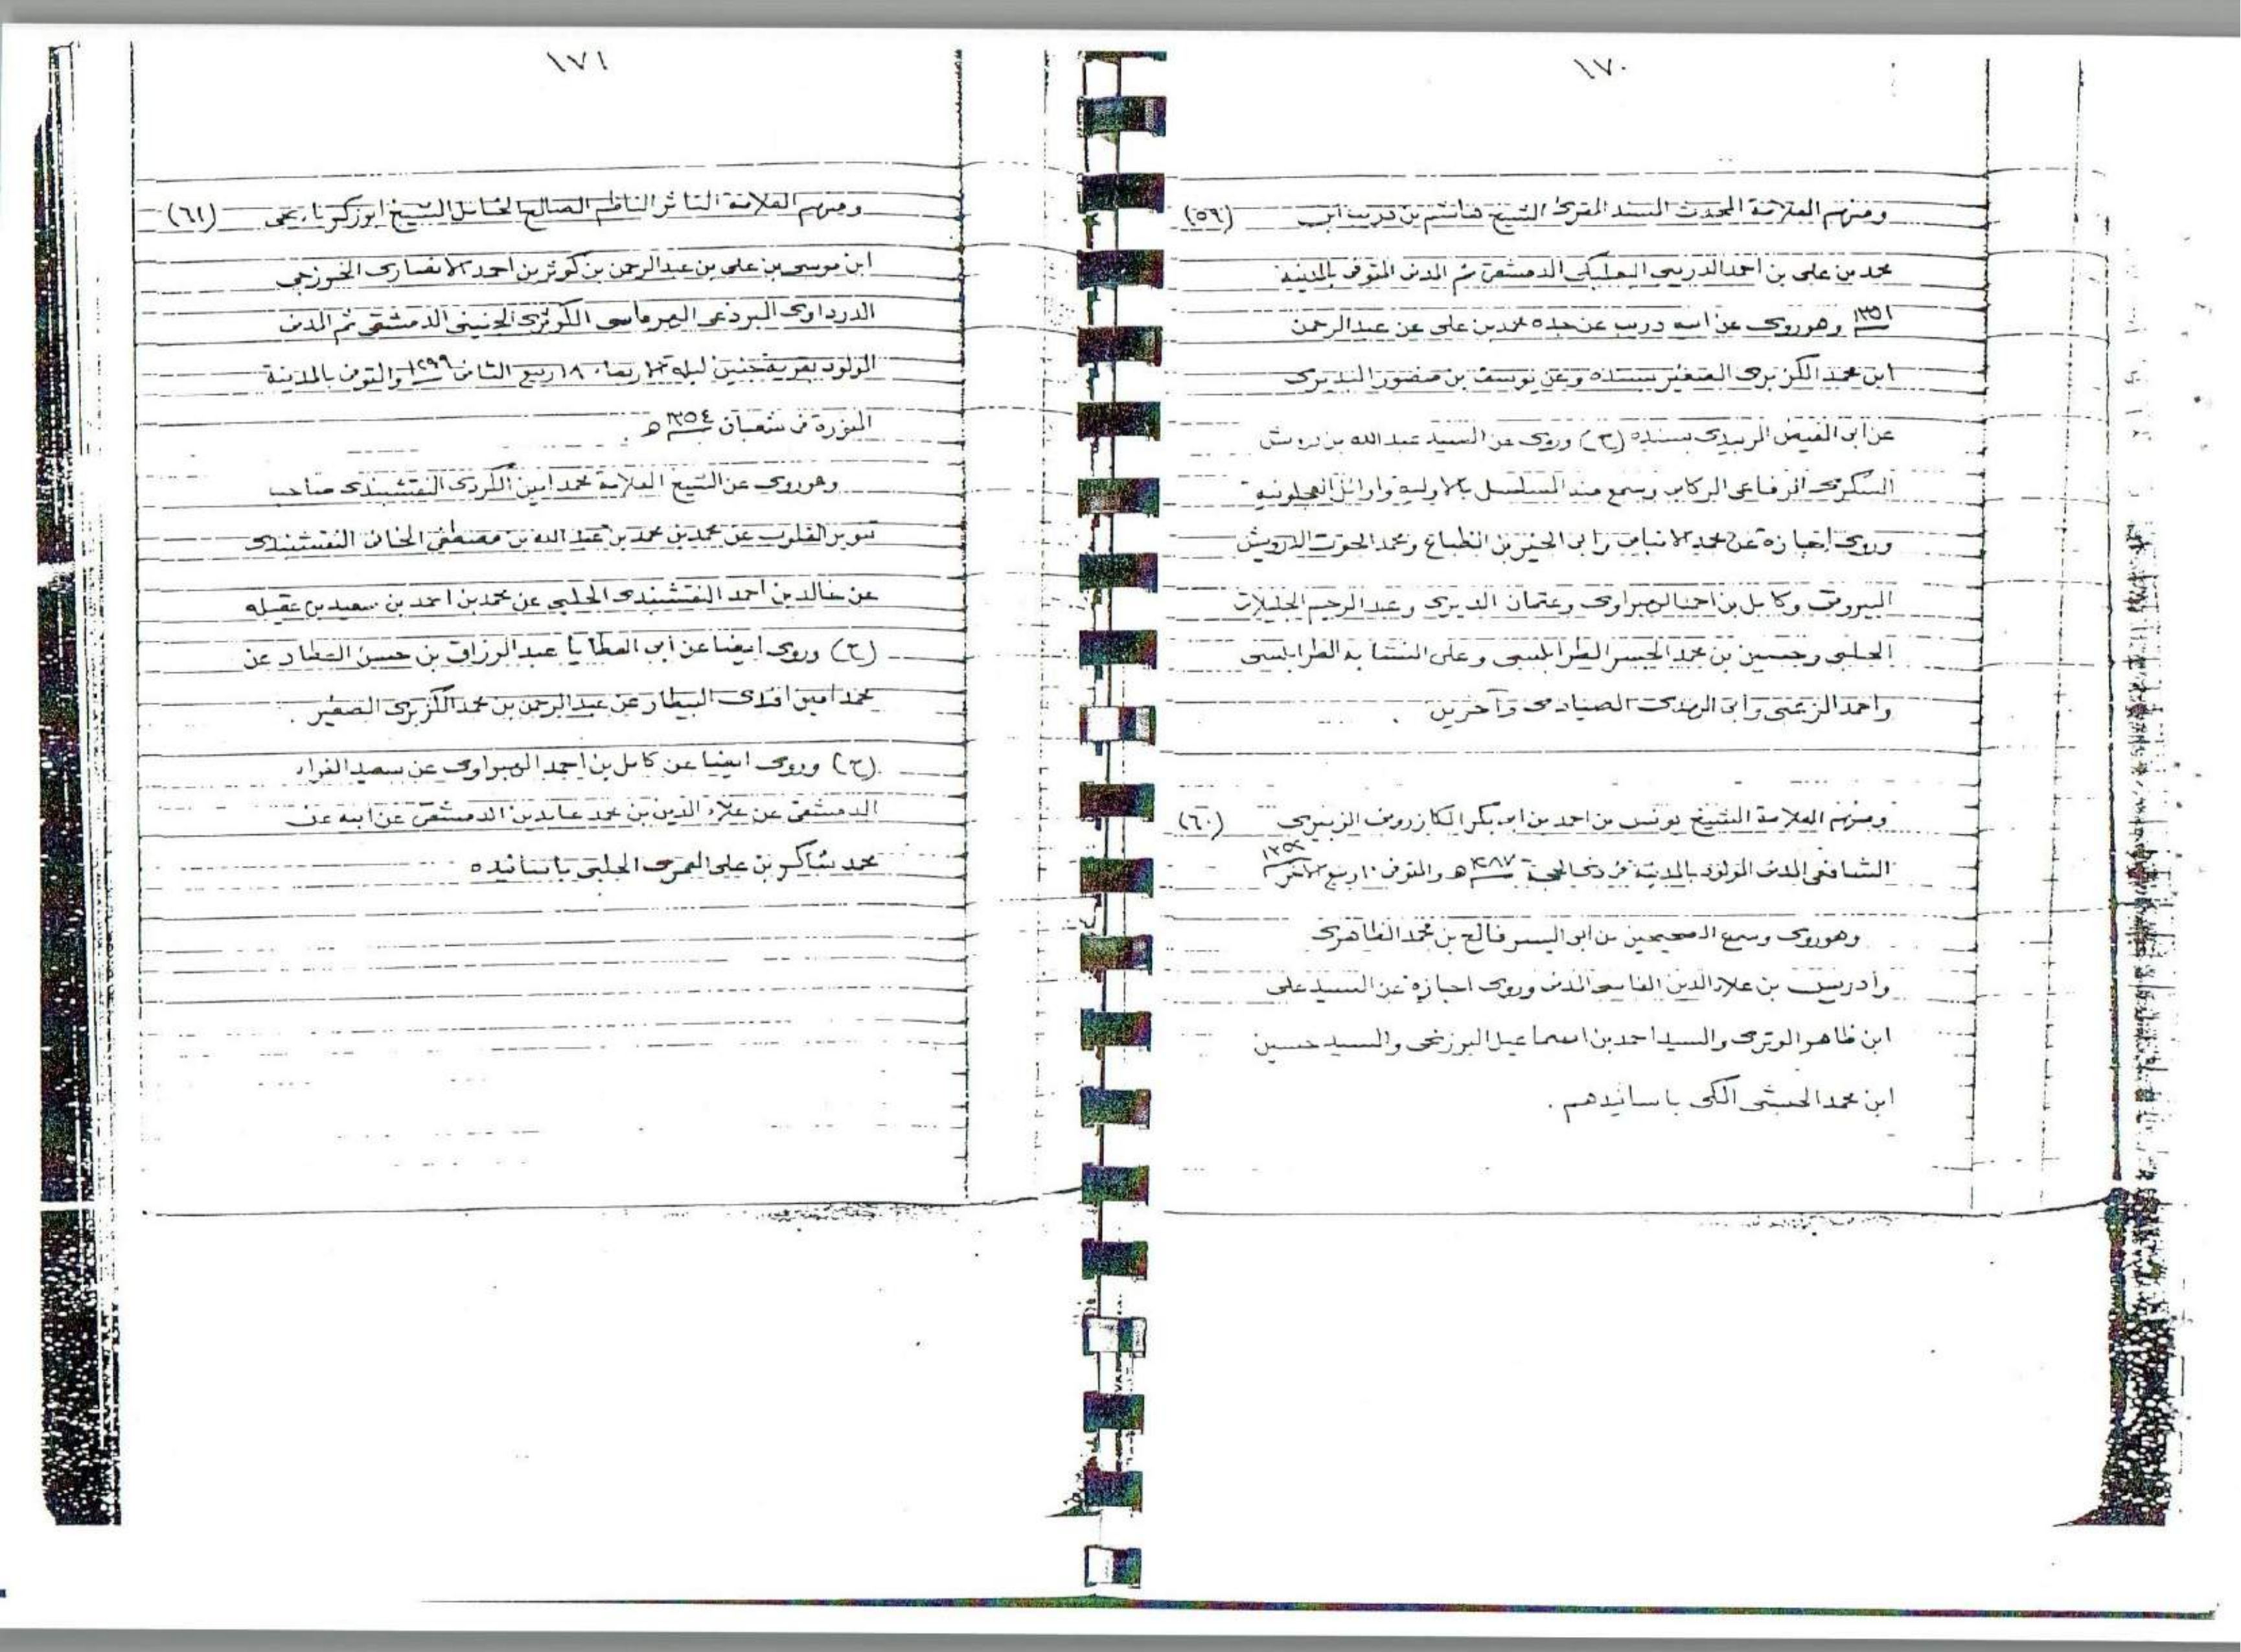 ١٧٠
ومنهم العلامة المحدث المسند المقرئ الشيخ هاشم بن دريب ابن (٥٩)
محمد بن علي بن احمد الدريبي البعلبكي الدمشقي ثم المدني المتوفى بالمدينة
١٣٥١ وهو روى عن ابيه دريب عن جده محمد بن علي عن عبد الرحمن
ابن محمد الكزبرى الصغير بسنده وعن يوسف بن منصور
عن ابي الفيض الزبيدى بسنده (ح) وروى عن السيد عبد الله بن درويش
السكرى الرفاعى الركابى وسمع منه المسلسل بالاولية واوائل العجلونية
وروى اجازة عن محمد الانبابى وابى الخير بن الطباع ومحمد الحوت الدرويش
البيروتى وكامل بن احمد الهبراوى وعثمان الديرى وعبد الرحيم
الحلبى وحسين بن محمد الجسر الطرابلسى وعلى النشابه الطرابلسى
واحمد الزعبى وابى الهدى الصيادى وآخرين .
ومنهم العلامة الشيخ يونس بن احمد بن ابى بكر الكازرونى الزبيرى (٦٠)
الشافعى المدنى المولود بالمدينة فى ذى الحجة ١٢٨٧ ھ والمتوفى ١٠ ربيع الآخر
وهو روى وسمع الصحيحين من ابى اليسر فالح بن محمد الظاهرى
وادريس بن علاء الدين الفاسى المدنى وروى اجازة عن السيد على
ابن ظاهر الوترى والسيد احمد بن اسماعيل البرزنجى والسيد حسين
ابن محمد الحبشى المكى باسانيدهم .
١٧١
ومنهم العلامة الناثر الناظم الصالح الشيخ ابو زكريا يحيى (٦١)
ابن موسى بن على بن عبد الرحمن بن كوثر بن احمد الانصارى الخزرجى
الدرداوى البردعى الهرماسى الكوثرى الجنينى الدمشقى ثم المدنى
المولود بقرية جنين ليلة الاربعاء ١٨ ربيع الثانى ١٢٩٩ والمتوفى بالمدينة
المنورة فى شعبان ١٣٥٤ ھ .
وهو روى عن الشيخ العلامة محمد امين الكردى النقشبندى صاحب
تنوير القلوب عن محمد بن محمد بن عبد الله بن مصطفى الخانى النقشبندى
عن خالد بن احمد النقشبندى الحلبى عن محمد بن احمد بن سعيد بن عقيله
(ح) وروى ايضا عن ابى العطايا عبد الرزاق بن حسن العطار عن
محمد امين افندى البيطار عن عبد الرحمن بن محمد الكزبرى الصغير .
(ح) وروى ايضا عن كامل بن احمد الهبراوى عن سعيد الفراء
الدمشقى عن علاء الدين بن محمد عابدين الدمشقى عن ابيه عن
محمد شاكر بن على العمرى الحلبى باسانيده